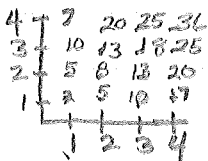 4 7 20 25 36
3 10 13 18 25
2 5 8 13 20
1 2 5 10 17
1 2 3 4